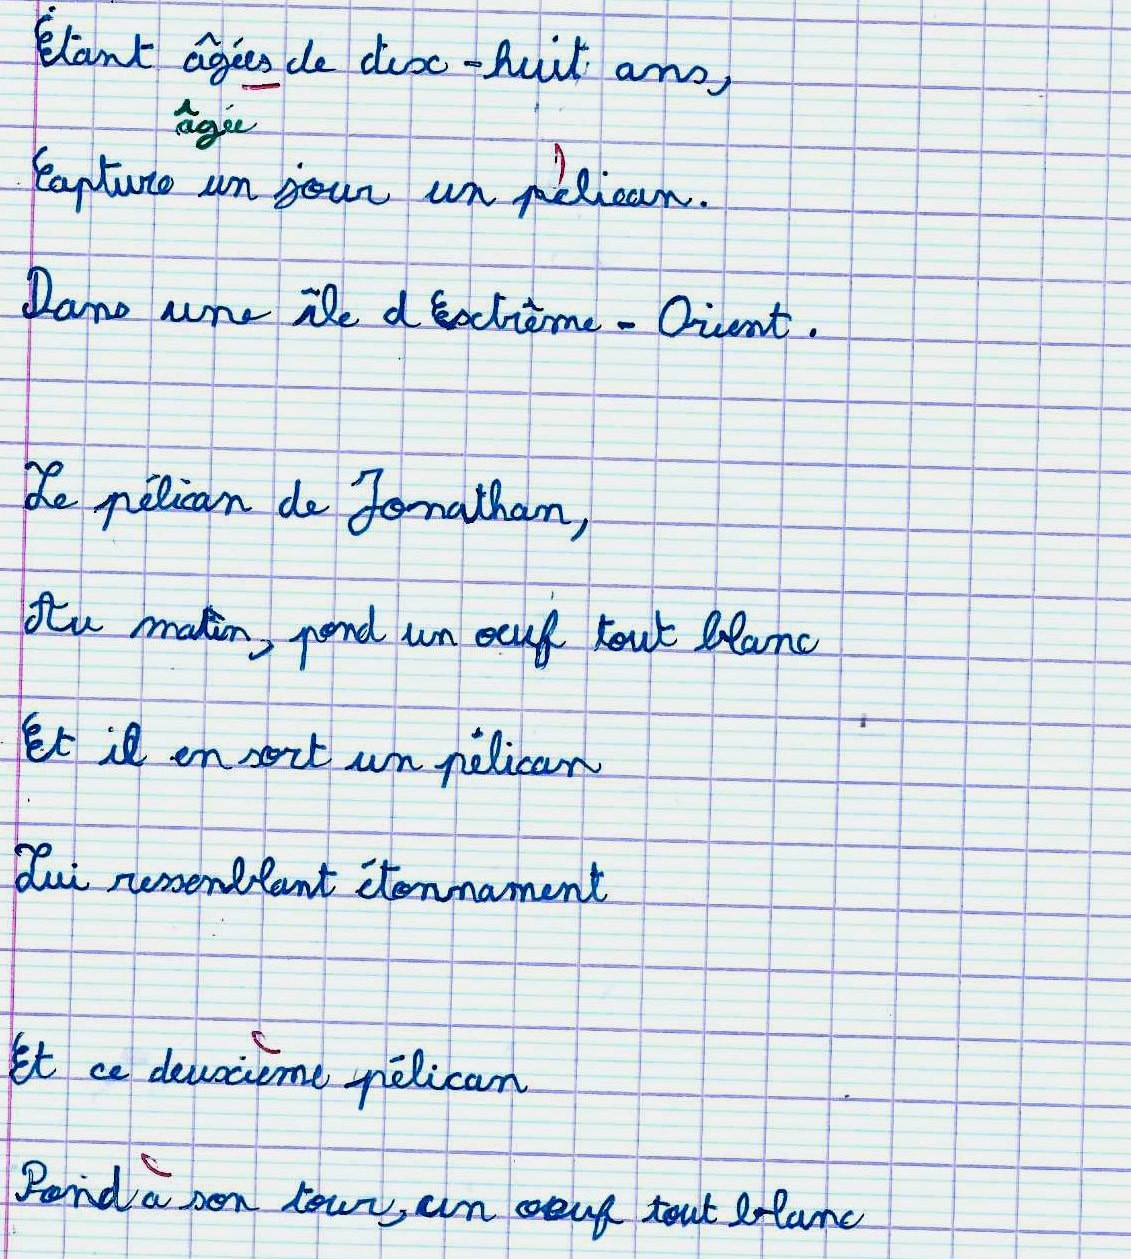 Étant âgées de dix-huit ans,
âgée
Capture un jour un pélican.
Dans une île d Extrême-Orient.
Le pélican de Jonathan,
Au matin, pond un oeuf tout blanc
Et il en sort un pélican
Lui ressemblant étonnament
Et ce deuxième pélican
Pond à son tour, un oeuf tout blanc